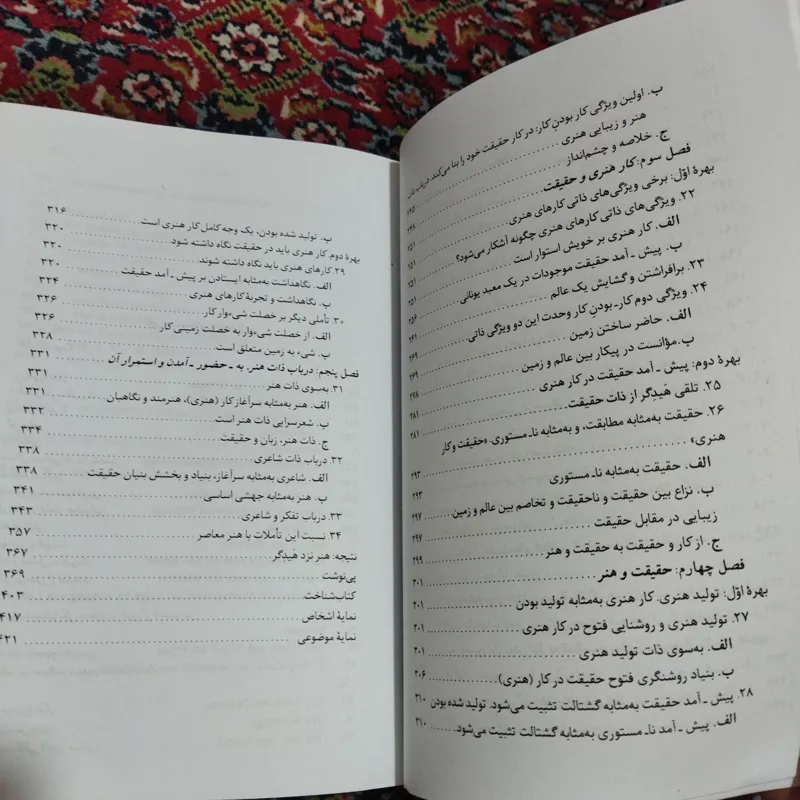 ب. اولین ویژگی کار بودنِ کار: در کار حقیقت خود را بنا می‌کند. درباب شأن
هنر و زیبایی هنری ........ ۲۴۵
ج. خلاصه و چشم‌انداز ........
فصل سوم: کار هنری و حقیقت ........ ۲۵۱
بهرهٔ اوّل: برخی ویژگی‌های ذاتی کارهای هنری ........ ۲۵۱
۲۲. ویژگی‌های ذاتی کارهای هنری چگونه آشکار می‌شود؟ ........ ۲۵۱
الف. کار هنری بر خویش استوار است ........ ۲۵۱
ب. پیش ـ آمد حقیقت موجودات در یک معبد یونانی ........
۲۳. برافراشتن و گشایش یک عالم ........ ۲۵۶
۲۴. ویژگی دوم کار ـ بودنِ کار وحدت این دو ویژگی ذاتی ........ ۲۶۱
الف. حاضر ساختن زمین ........ ۲۶۹
ب. مؤانست در پیکار بین عالم و زمین ........ ۲۶۹
بهرهٔ دوم: پیش ـ آمد حقیقت در کار هنری ........ ۲۷۸
۲۵. تلقی هَیدِگر از ذات حقیقت ........ ۲۸۱
۲۶. حقیقت به‌مثابه مطابقت، و به‌مثابه نا ـ مستوری. «حقیقت و کار ۲۸۱
هنری» ........ ۲۹۳
الف. حقیقت به‌مثابه نا ـ مستوری ........ ۲۹۳
ب. نزاع بین حقیقت و ناحقیقت و تخاصم بین عالم و زمین ........ ۲۹۷
زیبایی در مقابل حقیقت ........ ۲۹۷
ج. از کار و حقیقت به حقیقت و هنر ........ ۲۹۹
فصل چهارم: حقیقت و هنر ........ ۳۰۱
بهرهٔ اوّل: تولید هنری. کار هنری به‌مثابه تولید بودن ........ ۳۰۱
۲۷. تولید هنری و روشنایی فتوح در کار هنری ........ ۳۰۱
الف. به‌سوی ذات تولید هنری ........ ۳۰۱
ب. بنیاد روشنگری فتوح حقیقت در کار (هنری) ........ ۳۰۶
۲۸. پیش ـ آمد حقیقت به‌مثابه گشتالت تثبیت می‌شود. تولید شده بودن ۳۱۰
الف. پیش ـ آمد نا ـ مستوری به‌مثابه گشتالت تثبیت می‌شود. ........ ۳۱۰
ب. تولید شده بودن، یک وجه کامل کار هنری است ........ ۳۱۶
بهرهٔ دوم. کار هنری باید در حقیقت نگاه داشته شود ........ ۳۲۰
۲۹. کارهای هنری باید نگاه داشته شوند ........ ۳۲۰
الف. نگاهداشت به‌مثابه ایستادن بر پیش ـ آمد حقیقت ........ ۳۲۰
ب. نگاهداشت و تجربهٔ کارهای هنری ........ ۳۲۴
۳۰. تأملی دیگر بر خصلت شیءوار کار ........ ۳۲۶
الف. از خصلت شیءوار به خصلت زمینی کار ........ ۳۲۶
ب. شیء به زمین متعلق است ........ ۳۲۸
فصل پنجم: درباب ذات هنر. به ـ حضور ـ آمدن و استمرار آن ........ ۳۳۱
۳۱. به‌سوی ذات هنر ........ ۳۳۱
الف. هنر به‌مثابه سرآغاز کار (هنری)، هنرمند و نگاهبان ........
ب. شعرسرایی ذات هنر است ........ ۳۳۲
ج. ذات هنر، زبان و حقیقت ........ ۳۳۸
۳۲. درباب ذات شاعری ........
الف. شاعری به‌مثابه سرآغاز، بنیاد و بخشش بنیان حقیقت ........ ۳۳۸
ب. هنر به‌مثابه جهشی اساسی ........ ۳۴۱
۳۳. درباب تفکر و شاعری ........ ۳۴۳
۳۴. نسبت این تأملات با هنر معاصر ........ ۳۵۷
نتیجه: هنر نزد هَیدِگر ........ ۳۶۷
پی‌نوشت ........ ۳۶۹
کتاب‌شناخت ........ ۴۰۳
نمایهٔ اشخاص ........ ۴۱۷
نمایهٔ موضوعی ........ ۶۲۱